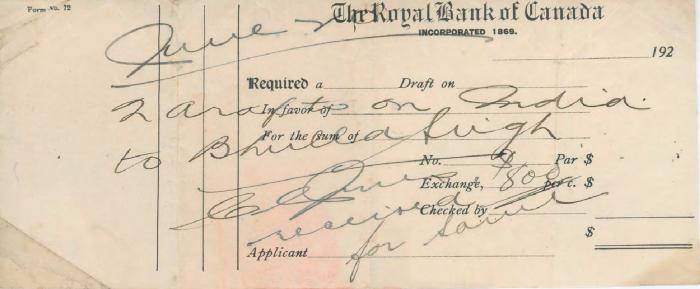 Form No. 12
The Royal Bank of Canada
INCORPORATED 1869.
June 2
192
Required a Draft on
2 drafts on India
In favor of
For the sum of
to Bhulla Singh
No. Par $
Exchange, $800 per c. $
Checked by
received
$
Applicant
for same